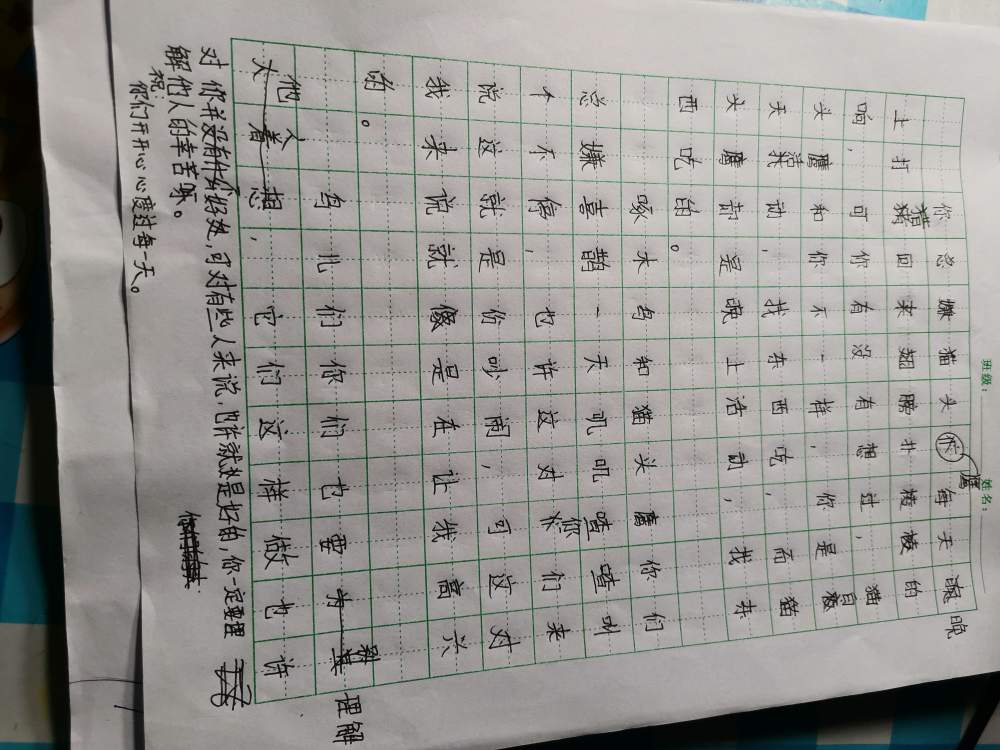 班级：
姓名：
你总嫌猫头鹰每天晚
上打猎回来翅膀扑棱棱的
响，可你有没有想过，猫
头鹰和你不一样，你是白
天活动，找东西吃，而猫
头鹰却是晚上活动，找东
西吃的。
啄木鸟和猫头鹰你们
总嫌喜鹊一天叽叽喳喳叫
个不停，也许这对你们来
说这就是份吵闹，可这对
我来说就像是在让我高兴
的。
鸟儿们你们也要理解
他人，它们这样做也许
对你并没有什么好处，可对有些人来说，也许就是好的，你一定要理
解他人的幸苦呀。
祝：
你们开开心心度过每一天。